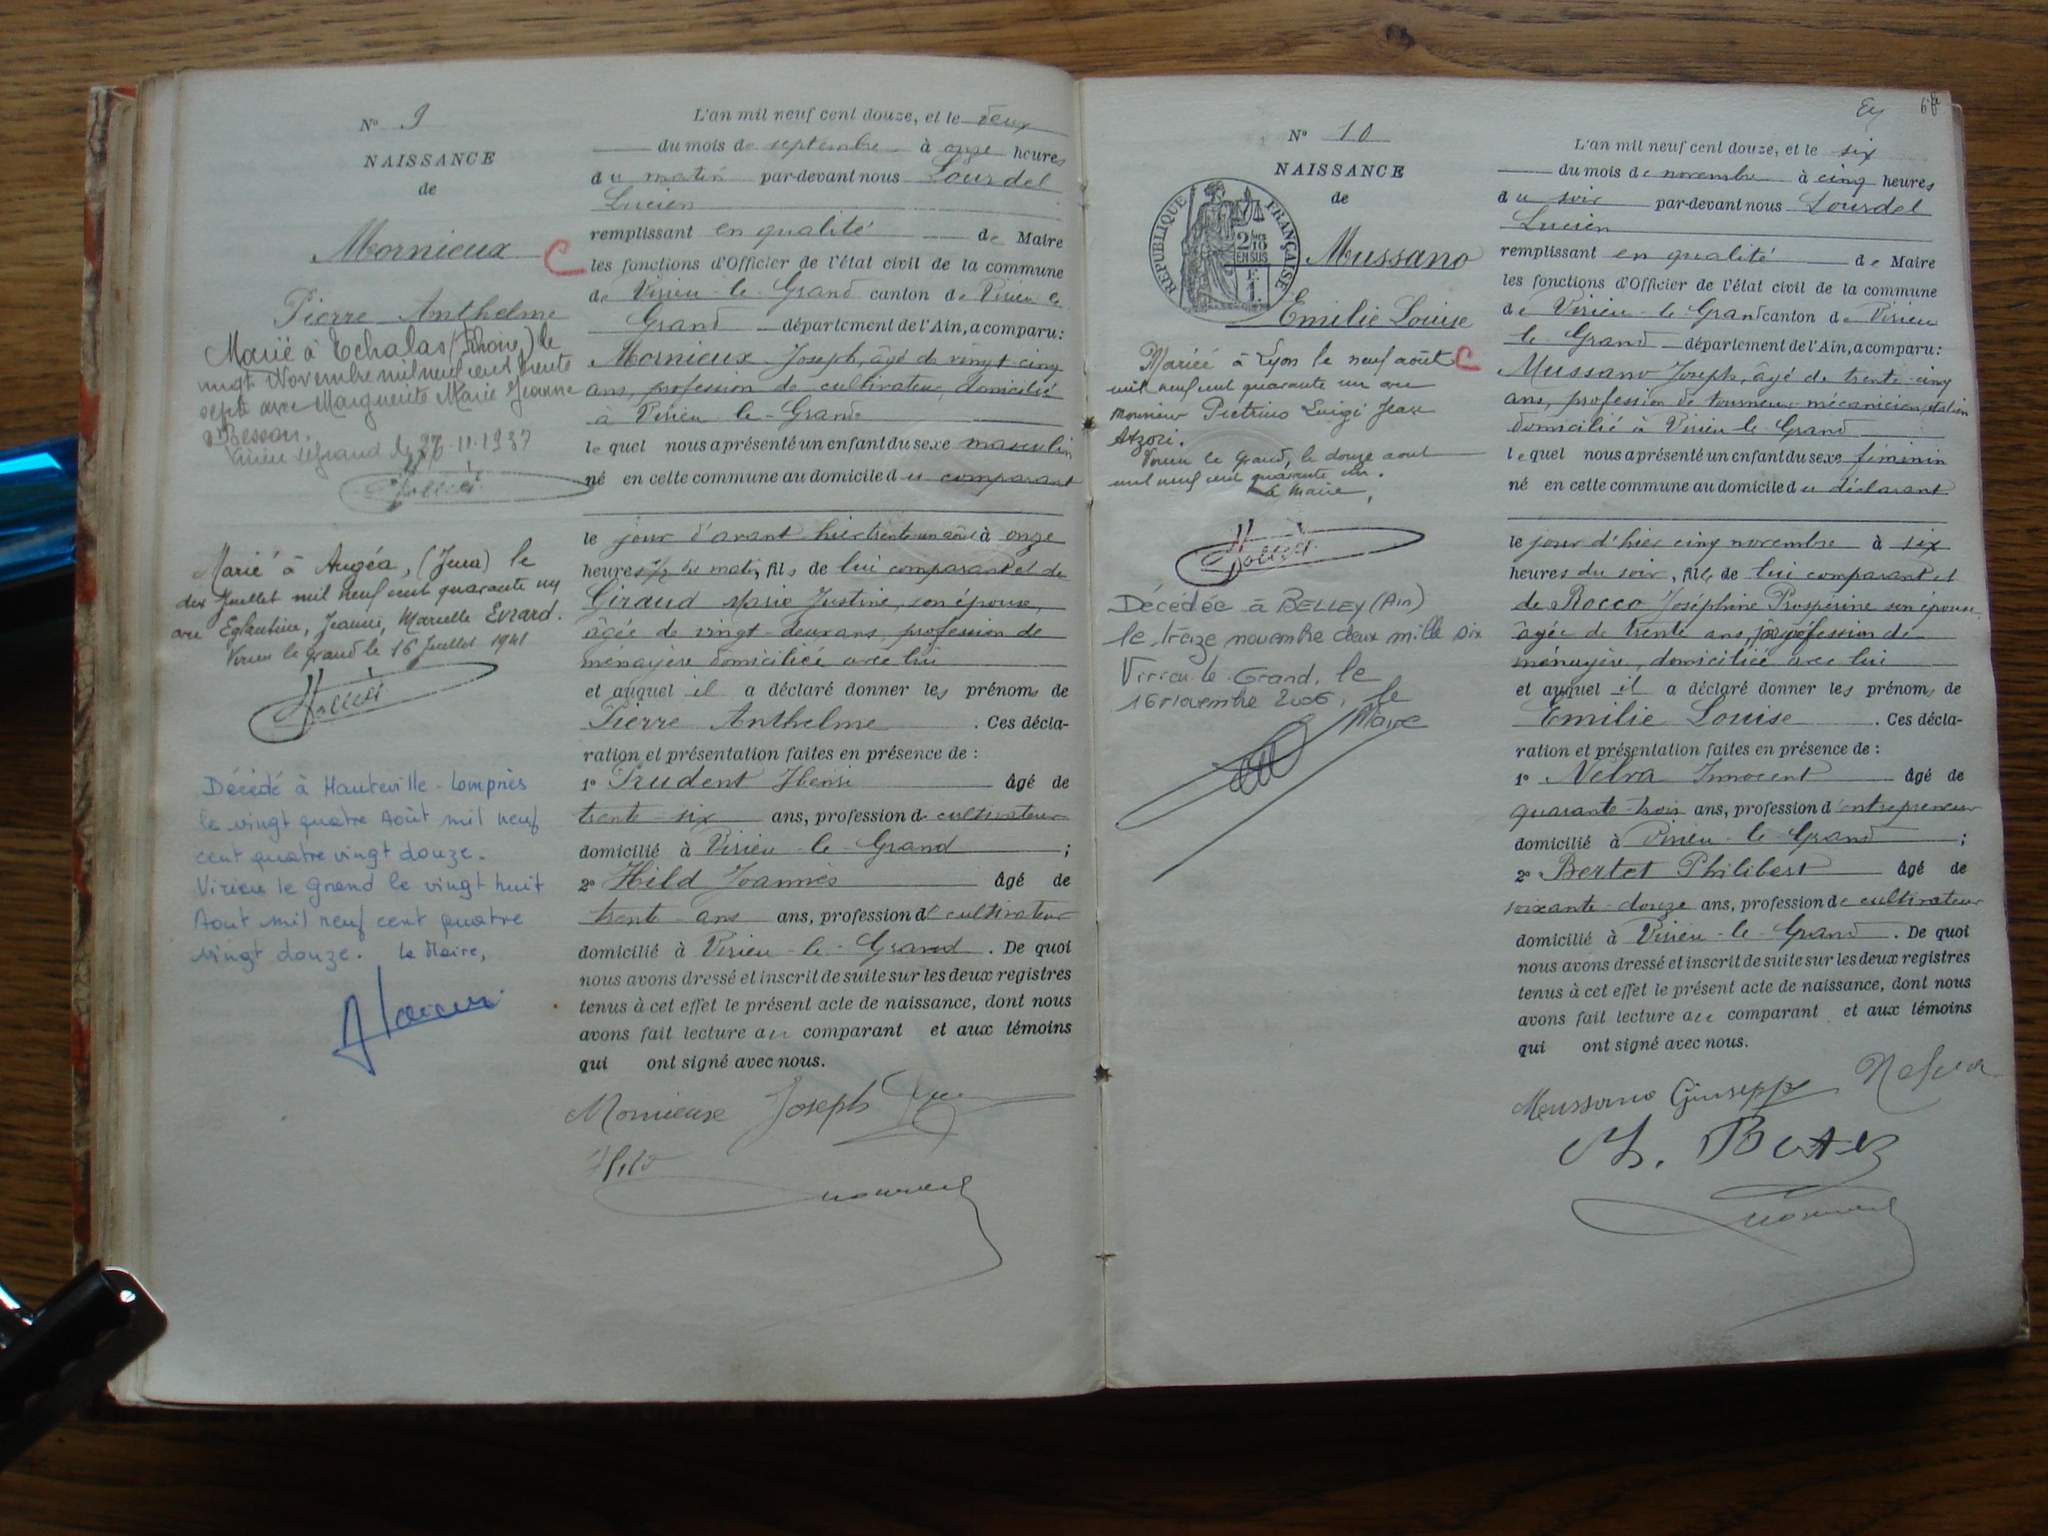 N° 9
NAISSANCE
de
Mornieux
Pierre Anthelme
Marié à Echalas (Rhône) le
vingt Novembre mil neuf cent trente
sept avec Marguerite Marie Jeanne
Besson.
Virieu le Grand le 27-11-1937
Marié à Augéa, (Jura) le
dix Juillet mil neuf cent quarante un
avec Eglantine, Jeanne, Marcelle Evrard.
Virieu le Grand le 16 Juillet 1941
Décédé à Hauteville-Lompnès
le vingt quatre Août mil neuf
cent quatre vingt douze.
Virieu le Grand le vingt huit
Aout mil neuf cent quatre
vingt douze. Le Maire,
L'an mil neuf cent douze, et le deux
du mois de septembre à onze heures
du matin par-devant nous Lourdel
Lucien
remplissant en qualité de Maire
les fonctions d'Officier de l'état civil de la commune
de Virieu-le-Grand canton de Virieu le
Grand département de l'Ain, a comparu:
Mornieux Joseph, âgé de vingt-cinq
ans, profession de cultivateur, domicilié
à Virieu-le-Grand
lequel nous a présenté un enfant du sexe masculin
né en cette commune au domicile du comparant
le jour d'avant hier trente un août à onze
heures 1/2 du matin, fils de lui comparant et de
Giraud Marie Justine, son épouse,
âgée de vingt-deux ans, profession de
ménagère domiciliée avec lui
et auquel il a déclaré donner les prénoms de
Pierre Anthelme. Ces décla-
ration et présentation faites en présence de :
1° Prudent Henri âgé de
trente-six ans, profession de cultivateur
domicilié à Virieu-le-Grand ;
2° Hild Joannès âgé de
trente ans ans, profession de cultivateur
domicilié à Virieu-le-Grand. De quoi
nous avons dressé et inscrit de suite sur les deux registres
tenus à cet effet le présent acte de naissance, dont nous
avons fait lecture au comparant et aux témoins
qui ont signé avec nous.
Mornieux Joseph
Hild
68
N° 10
NAISSANCE
de
RÉPUBLIQUE FRANÇAISE
2/10 EN SUS
Mussano
Emilie Louise
Mariée à Lyon le neuf août
mil neuf cent quarante un avec
Monsieur Pietrino Luigi Jean
Atzori.
Virieu le Grand, le douze aout
mil neuf cent quarante un.
Le Maire,
Décédée à BELLEY (Ain)
le treize novembre deux mille six
Virieu-le-Grand, le
16 novembre 2006, le
Maire
L'an mil neuf cent douze, et le six
du mois de novembre à cinq heures
du soir par-devant nous Lourdel
Lucien
remplissant en qualité de Maire
les fonctions d'Officier de l'état civil de la commune
de Virieu-le-Grand canton de Virieu
le Grand département de l'Ain, a comparu:
Mussano Joseph, âgé de trente-cinq
ans, profession de tourneur-mécanicien, italien
domicilié à Virieu-le-Grand
lequel nous a présenté un enfant du sexe féminin
né en cette commune au domicile du déclarant
le jour d'hier cinq novembre à six
heures du soir, fille de lui comparant et
de Rocco Joséphine Prospérine son épouse,
âgée de trente ans, profession de
ménagère, domiciliée avec lui
et auquel il a déclaré donner les prénoms de
Emilie Louise. Ces décla-
ration et présentation faites en présence de :
1° Nelva Innocent âgé de
quarante-trois ans, profession d'entrepreneur
domicilié à Virieu-le-Grand ;
2° Bertet Philibert âgé de
soixante-douze ans, profession de cultivateur
domicilié à Virieu-le-Grand. De quoi
nous avons dressé et inscrit de suite sur les deux registres
tenus à cet effet le présent acte de naissance, dont nous
avons fait lecture au comparant et aux témoins
qui ont signé avec nous.
Mussano Giuseppe Nelva